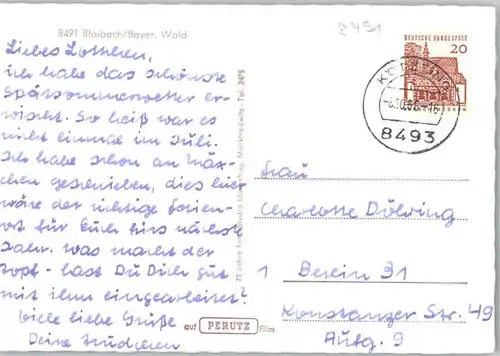 8491 Blaibach/Bayer. Wald
8491
Liebes Lottchen,
ich habe das schönste
Spätsommerwetter er-
wischt. So heiß war es
nicht einmal im Juli.
Ich habe schon an Mäx-
chen geschrieben, dies hier
wäre der richtige Ferien-
ort für Euch fürs nächste
Jahr. Was macht der
Kopf - hast Du Dich gut
mit ihm eingearbeitet?
Viele liebe Grüße
Deine
auf PERUTZ Film
DEUTSCHE BUNDESPOST
20
KÖTZTING
8493
Frau
Charlotte Döhring
1 Berlin 31
Konstanzer Str. 49
Aufg. 9